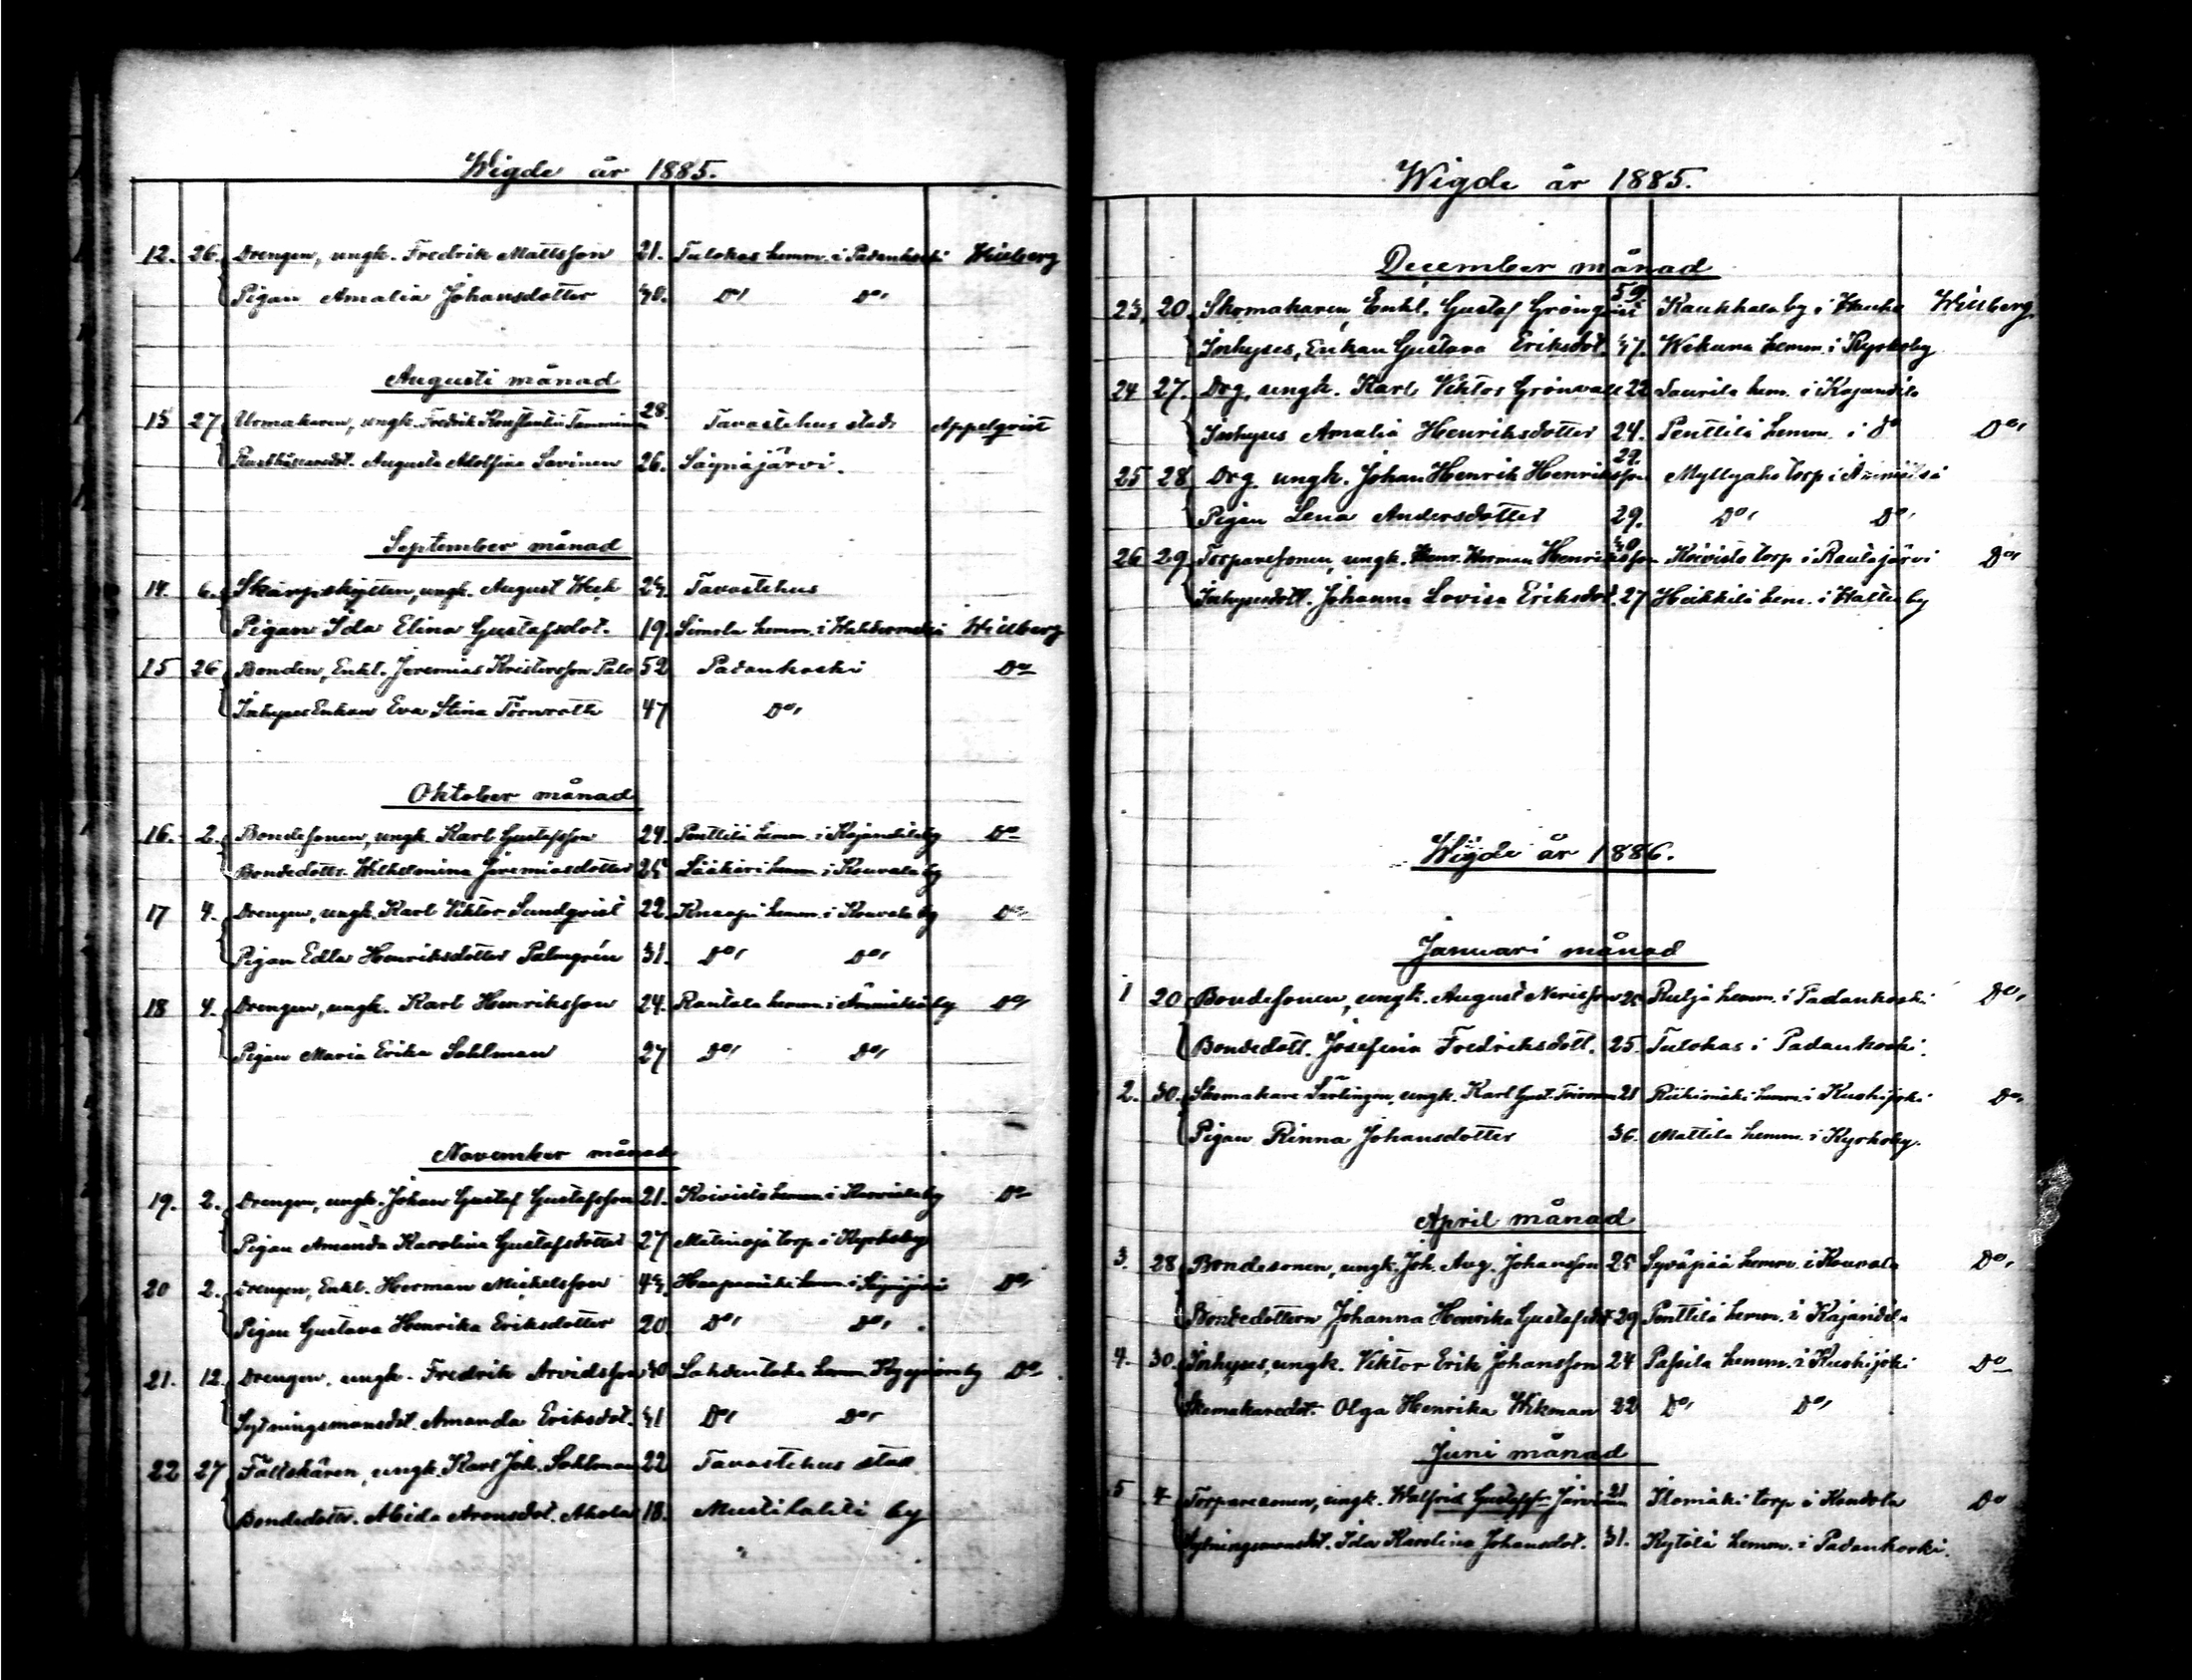 Wigde år 1885.
12. 26. Drengen, ungk. Fredrik Mattsson 21. Tulokas hemm. i Padankoski Willberg
Pigan Amalia Johansdotter 40. Do, Do,
Augusti månad
13 27 Urmakaren, ungk. Fredrik Konstantin Tamminen 28. Tavastehus stad Appelqvist
Augusta Adolfina Savinen 26. Säynäjärvi.
September månad
14. 6. Skarpskytten, ungk. August Week 24. Tavastehus
Pigan Ida Elina Gustafsdot. 19. Simola hemm. i Willberg
15 26 Bonden, Enkl. Jeremias Kristersson Palo 52 Padankoski Do
Inhyses Enkan Eva Stina Törnroth 47 Do,
Oktober månad
16. 2. Bondesonen, ungk. Karl Gustafsson 24. Penttilä hemm. i Kajandila by Do
Bondedottr. Wilhelmina Jeremiasdotter 24 Lääkäri hemm. i Kouvala by
17 4. Drengen, ungk. Karl Viktor Sundqvist 22. Knaapi hemm. i Kouvala by Do
Pigan Edla Henriksdotter Palmgrén 31. Do, Do,
18 4. Drengen, ungk. Karl Henriksson 24. Rantala hemm. i by Do,
Pigan Maria Erika Sahlman 27 Do, Do,
November månad
19. 2. Drengen, ungk. Johan Gustaf Gustafsson 21. Koivisto hemm. i by Do
Pigan Amanda Karolina Gustafsdotter 27 Matinoja torp i Kyrkoby
20 2. Drengen, Enkl. Herman Mickelsson 44. Haapamäki hemm. i Do,
Pigan Gustava Henrika Eriksdotter 20 Do, Do,
21. 12. Drengen, ungk. Fredrik Arvidsson 40 Lahdentaka hemm. by Do.
Sytningsmansdot. Amanda Eriksdot. 41 Do, Do,
22 27 Fältskären, ungk. Karl Joh. Sahlman 22 Tavastehus stad
Bondedottr. Alida Aronsdot. Ahola 18. Mustilahti by
Wigde år 1885.
December månad
23. 20. Skomakaren, Enkl. Gustaf Grönqvist 59. Kaukkala by i Hauho Willberg
Inhyses, Enkan Gustava Eriksdot. 47. Wekuna hemm. i Kyrkoby
24 27. Drg. ungk. Karl Viktor Grönvall 22 Saurila hem. i Kajandila
Inhyses Amalia Henriksdotter 24. Penttilä hemm. i Do Do,
25 28 Drg. ungk. Johan Henrik Henriksson 29. Myllyaho torp i
Pigan Lena Andersdotter 29. Do, Do,
26 29 Torparesonen, ungk. Herman Henriksson 40 Koivisto torp i Rautajärvi Do,
Inhysesdott. Johanna Lovisa Eriksdot. 27 Heikkilä hem. i by
Wigde år 1886.
Januari månad
1 20 Bondesonen, ungk. August Rulja hemm. i Padankoski Do,
Bondedott. Josefina Fredriksdott. 25. Tulokas i Padankoski.
2. 30. Skomakare Lärlingen, ungk. Karl Gust. 21 Riihimäki hemm. i Kuohijoki Do,
Pigan Rinna Johansdotter 36. Mattila hemm. i Kyrkoby.
April månad
3. 28. Bondesonen, ungk. Joh. Aug. Johansson 25 Syväpää hemm. i Kouvala Do,
Bondedottern Johanna Henrika Gustafsdot 29 Penttilä hemm. i Kajandila
4. 30. Inhyses, ungk. Viktor Erik Johansson 24 Passila hemm. i Kuohijoki Do
Skomakaredot. Olga Henrika Wikman 22 Do, Do,
Juni månad
5 4 Torparesonen, ungk. Walfrid Gustafsson Järvinen 21 Ilomäki torp i Kondola Do
Sytningsmansdot. Ida Karolina Johansdot. 31. Kytölä hemm. i Padankoski.